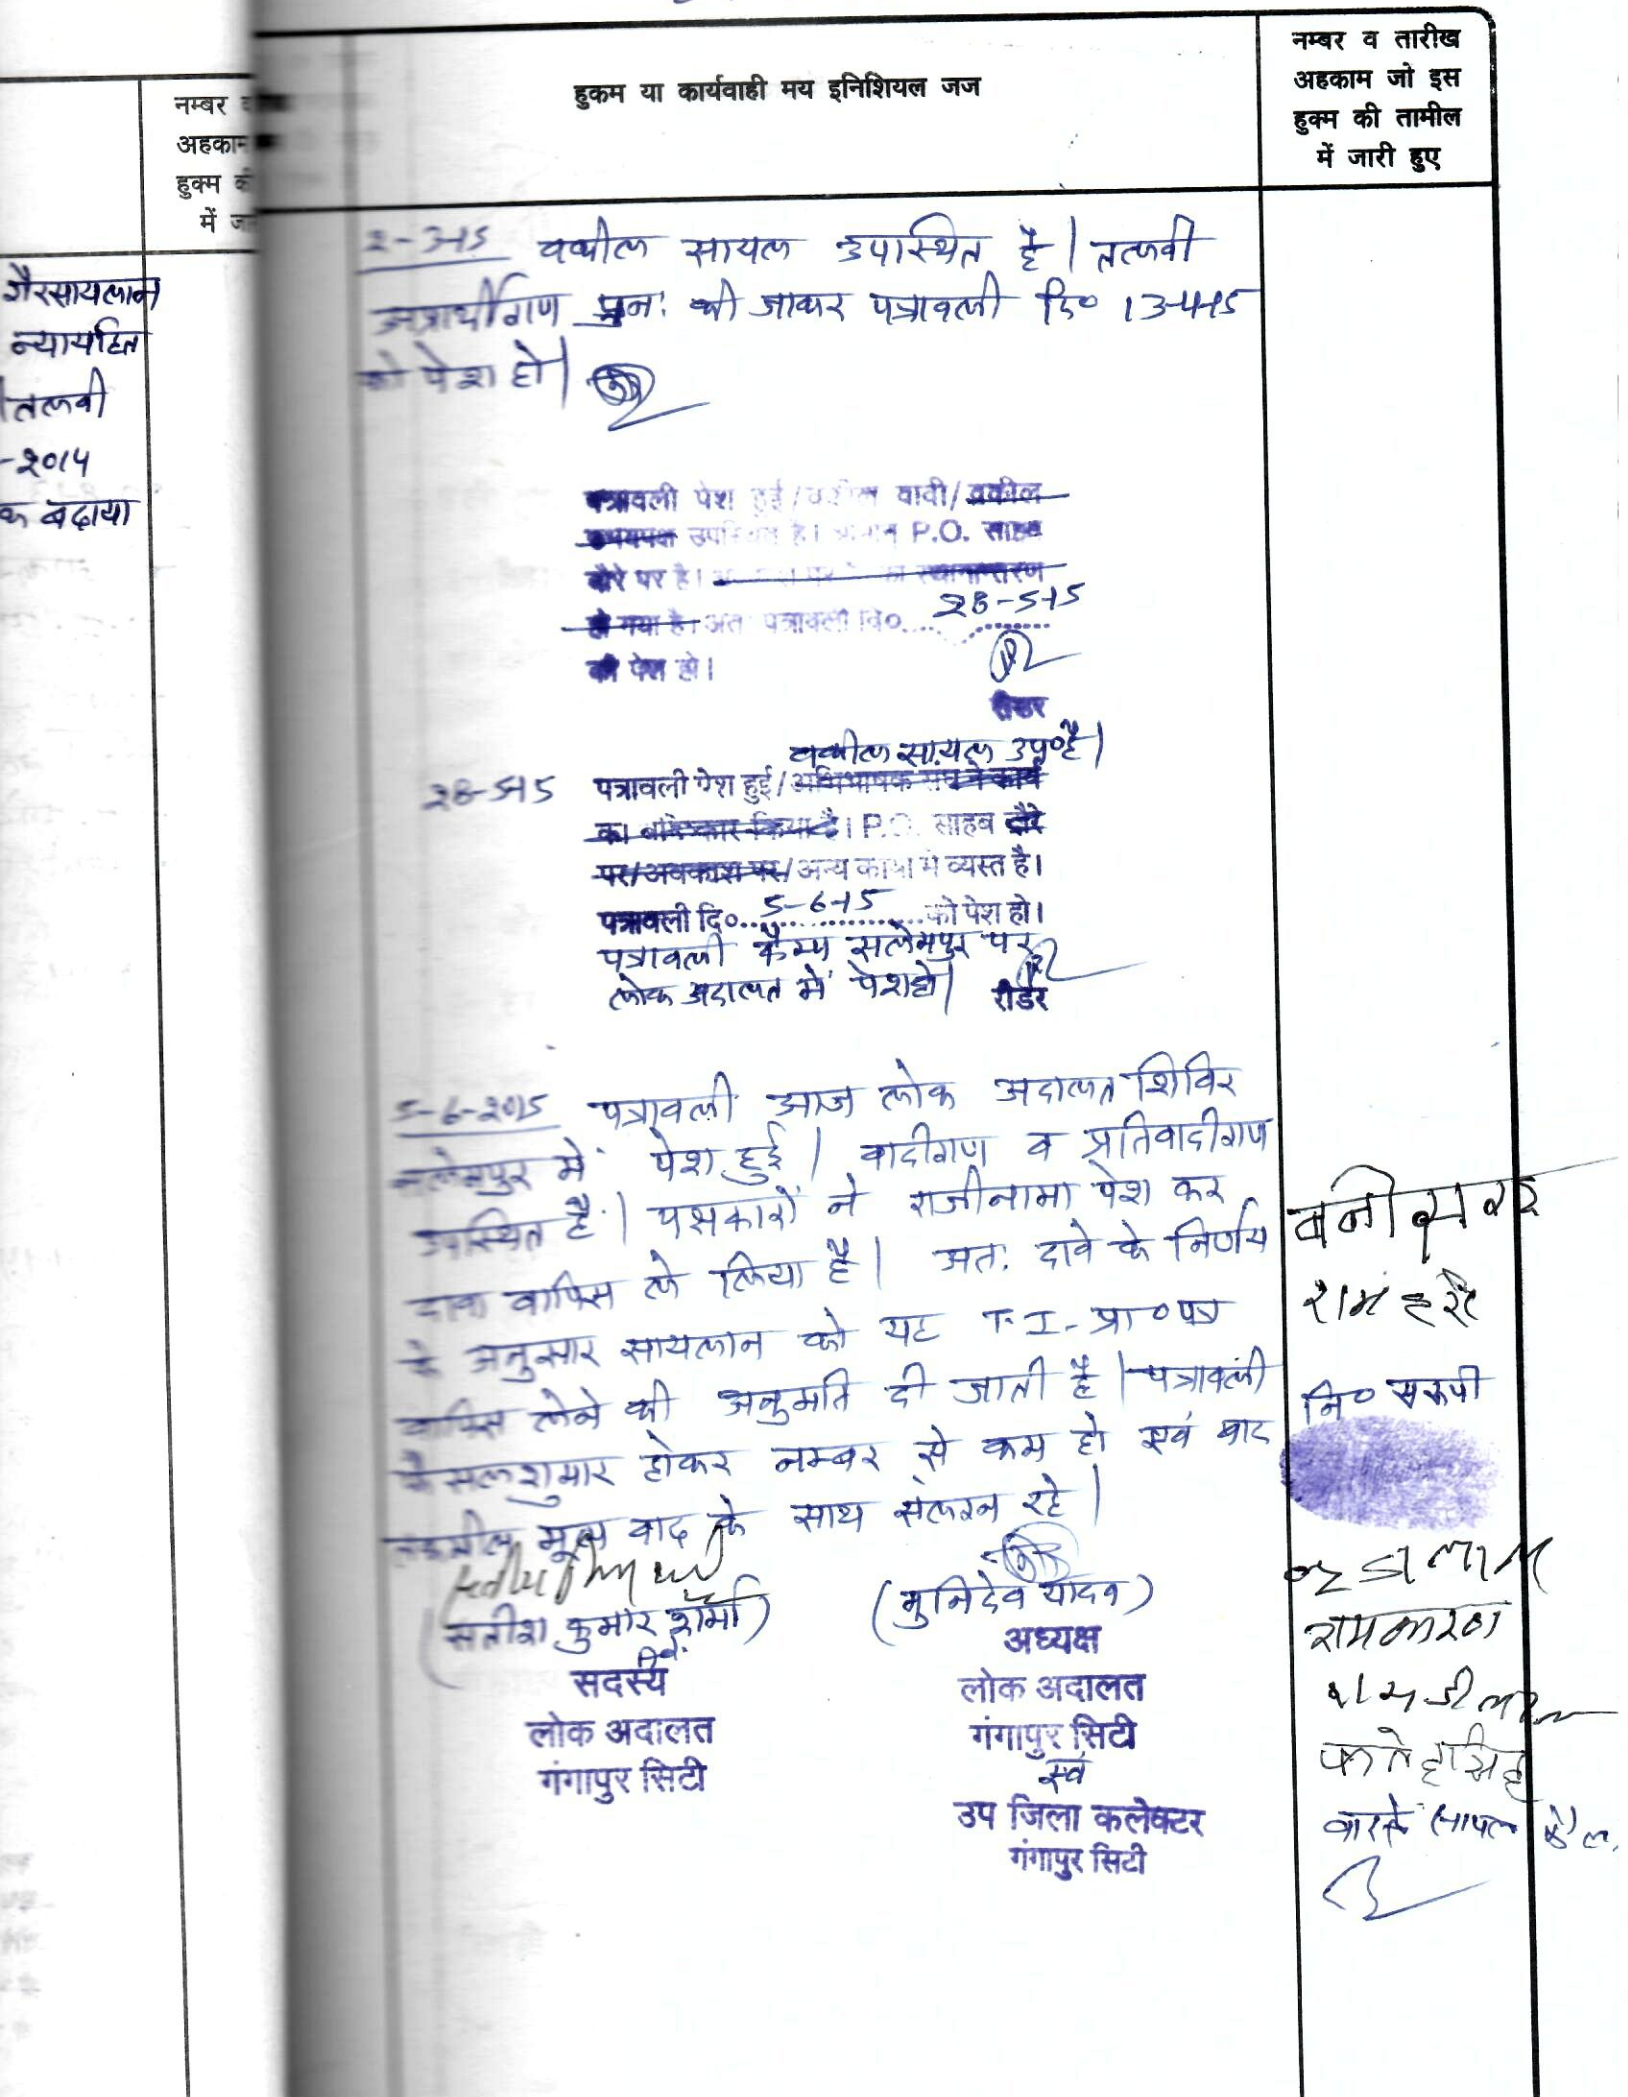 नम्बर
अहकाम
हुक्म की
में जा
गैरसायलान
न्यायहित
तलवी
-2014
बढ़ाया
हुकम या कार्यवाही मय इनिशियल जज
नम्बर व तारीख
अहकाम जो इस
हुक्म की तामील
में जारी हुए
2-3-15 वकील सायल उपास्थित है। तलवी
अप्रार्थीगण पुन: की जाकर पत्रावली दि० 13-4-15
को पेश हो।
पत्रावली पेश हुई/वकील वादी/वकील
उभयपक्ष उपस्थित है। श्रीमान P.O. साहब
दौरे पर है। स्थानान्तरण
हो गया है। अत: पत्रावली दि०.... 28-5-15
को पेश हो।
रीडर
वकील सायल उप०है।
28-5-15 पत्रावली पेश हुई/अभिभाषक संघ ने कार्य
का बहिष्कार किया है। P.O. साहब दौरे
पर/अवकाश पर/अन्य कार्यो में व्यस्त है।
पत्रावली दि०... 5-6-15 ...को पेश हो।
पत्रावली कैम्प सलेमपुर पर
लोक अदालत में पेश हो।
रीडर
5-6-2015 पत्रावली आज लोक अदालत शिविर
सलेमपुर में पेश हुई। वादीगण व प्रतिवादीगण
उपस्थित हैं। पक्षकारों ने राजीनामा पेश कर
दावा वापिस ले लिया है। अत: दावे के निर्णय
के अनुसार सायलान को यह T.I. प्रा०पत्र
वापिस लेने की अनुमति दी जाती है। पत्रावली
फैसलशुमार होकर नम्बर से कम हो एवं बाद
तकमील मूल वाद के साथ संलग्न रहे।
(सतीश कुमार शर्मा)
सदस्य
लोक अदालत
गंगापुर सिटी
(मुनिदेव यादव)
अध्यक्ष
लोक अदालत
गंगापुर सिटी
एवं
उप जिला कलेक्टर
गंगापुर सिटी
रामहरि
नि० सरूपी
रामकरण
फतेहसिंह